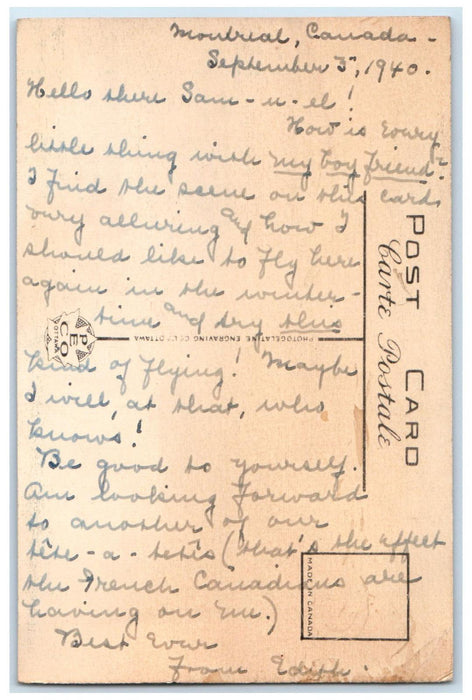 Montreal, Canada -
September 3, 1940.
Hello there Sam-u-el!
How is every
little thing with my boy friend?
I find the scene on this card
very alluring and how I
should like to fly here
again in the winter-
time and try this
kind of flying! Maybe
I will, at that, who
knows!
Be good to yourself.
Am looking forward
to another of our
tête-a-tetês (that's the effect
the French Canadians are
having on me.)
Best Ever
From Edith.
POST CARD
Carte Postale
PHOTOGELATINE ENGRAVING CO. OTTAWA
PECO
OTTAWA
MADE IN CANADA